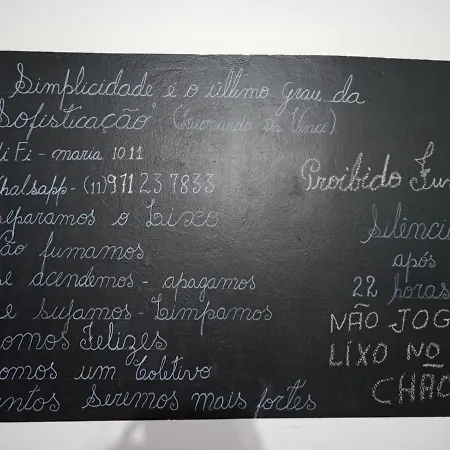 Simplicidade é o último grau da
Sofisticação" (Leonardo da Vinci)
iFi - maria 1011
Whatsapp- (11) 971 23 7833
separamos o Lixo
não fumamos
se acendemos - apagamos
e sujamos - Limpamos
somos Felizes
somos um Coletivo
untos Seremos mais fortes
Proibido Fum
Silêncio
após
22 horas
NÃO JOG
LIXO NO
CHÃO